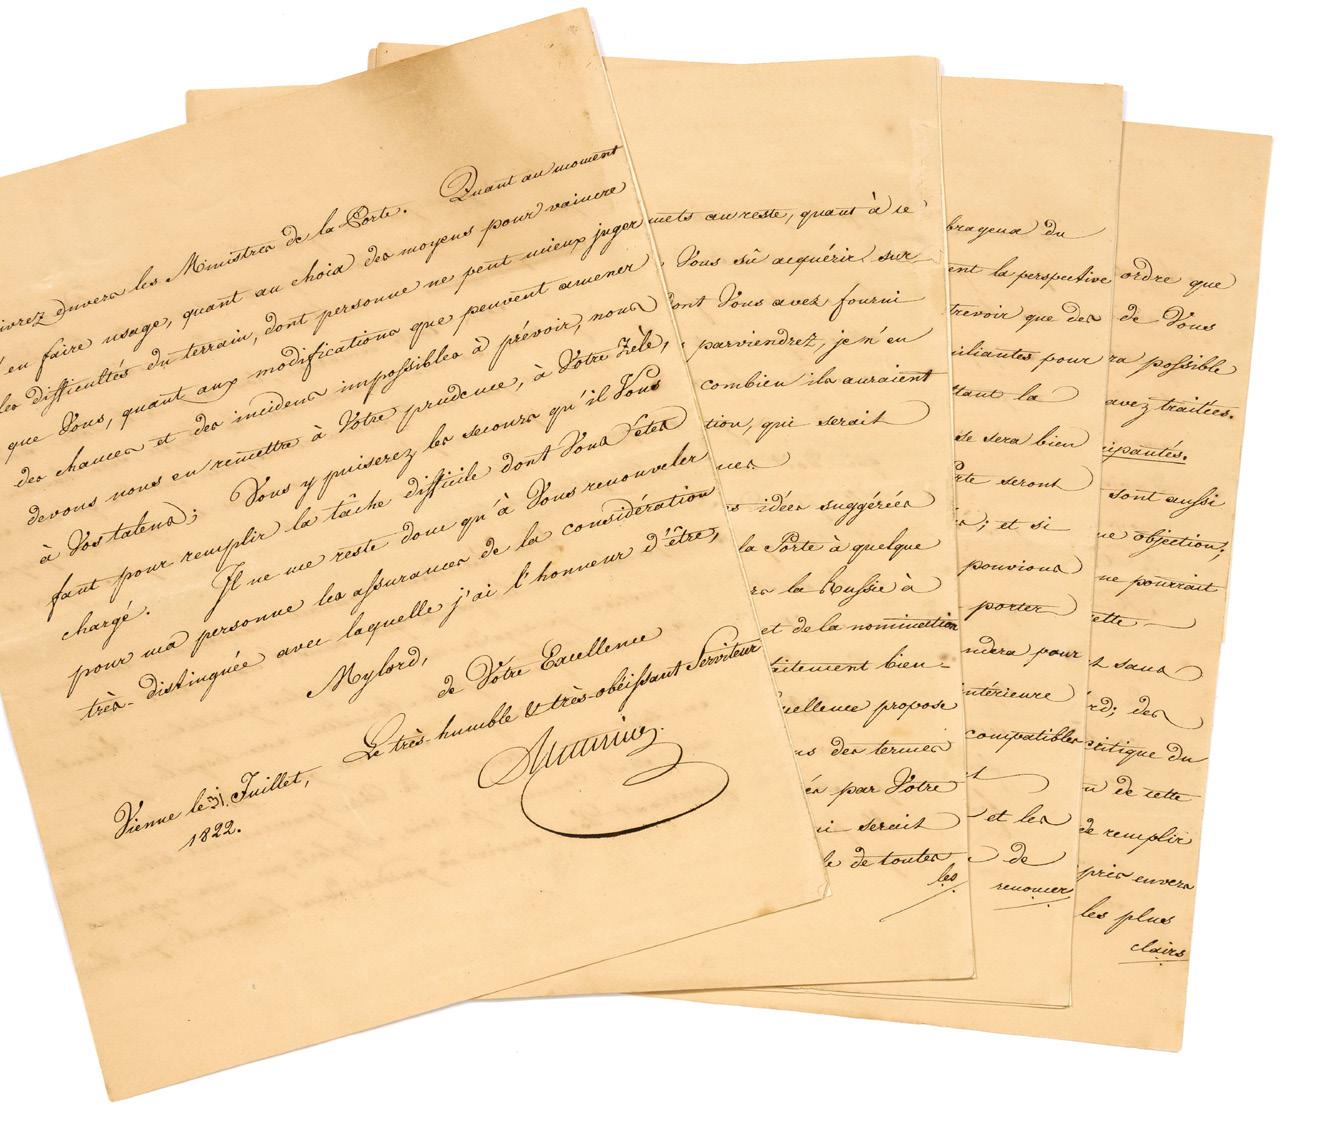 ivrez envers les Ministres de la Porte. Quant au moment
d'en faire usage, quant au choix des moyens pour vaincre
les difficultés du terrain, dont personne ne peut mieux juger
que Vous, quant aux modifications que peuvent amener
des chances et des incidens impossibles à prévoir, nous
devons nous en remettre à Votre prudence, à Votre zèle,
à Vos talens; Vous y puiserez les secours qu'il Vous
faut pour remplir la tâche difficile dont Vous êtes
chargé. Il ne me reste donc qu'à Vous renouveler
pour ma personne les assurances de la considération
très-distinguée avec laquelle j'ai l'honneur d'être,
Mylord,
de Votre Excellence
Le très-humble & très-obéissant Serviteur
Metternich
Vienne le 31 Juillet,
1822.
mets au reste, quant à ce
Vous sû acquérir sur
dont Vous avez fourni
parviendrez, je n'en
combien ils auraient
tion, qui serait
idées suggérées
la Porte à quelque
la Russie à
et de la nomination
aitement bien-
cellence propose
ns des termes
és par Votre
ui serait
de toutes
les
brageux du
ent la perspective
trevoir que des
iliantes pour
ttant la
se sera bien
rte seront
; et si
pouvions
porter
ndera pour
intérieure
compatibles
et les
de
renouer
ordre que
de Vous
possible
avez traitées.
cipantés.
sont aussi
ne objection;
ne pourrait
cette
sans
rd; des
critique du
de cette
de remplir
pris envers
les plus
clairs